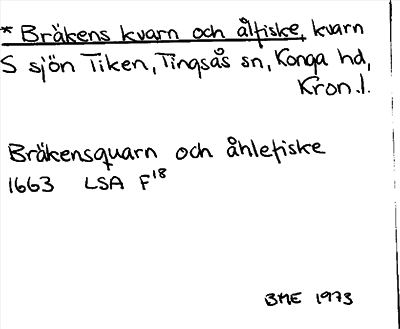 * Bräkens kvarn och ålfiske, kvarn
S sjön Tiken, Tingsås sn, Konga hd,
Kron.l.
Bräkensquarn och åhlefiske
1663 LSA F18
BME 1973